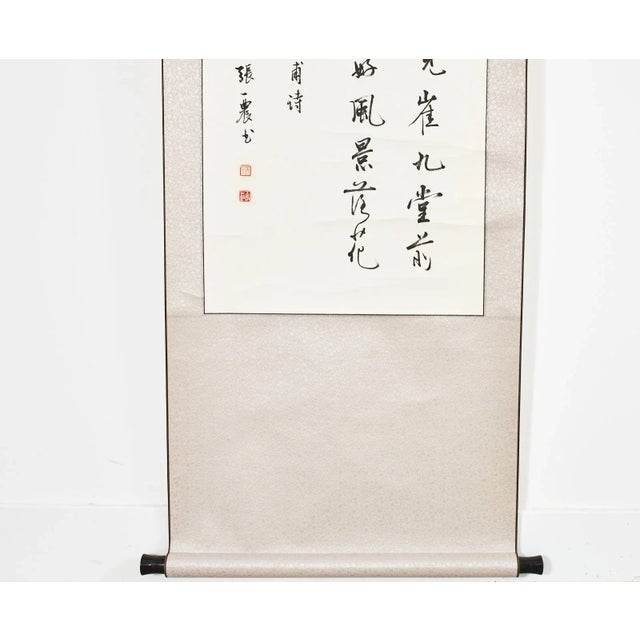 崔九堂前
好風景落花
甫诗
張一農书